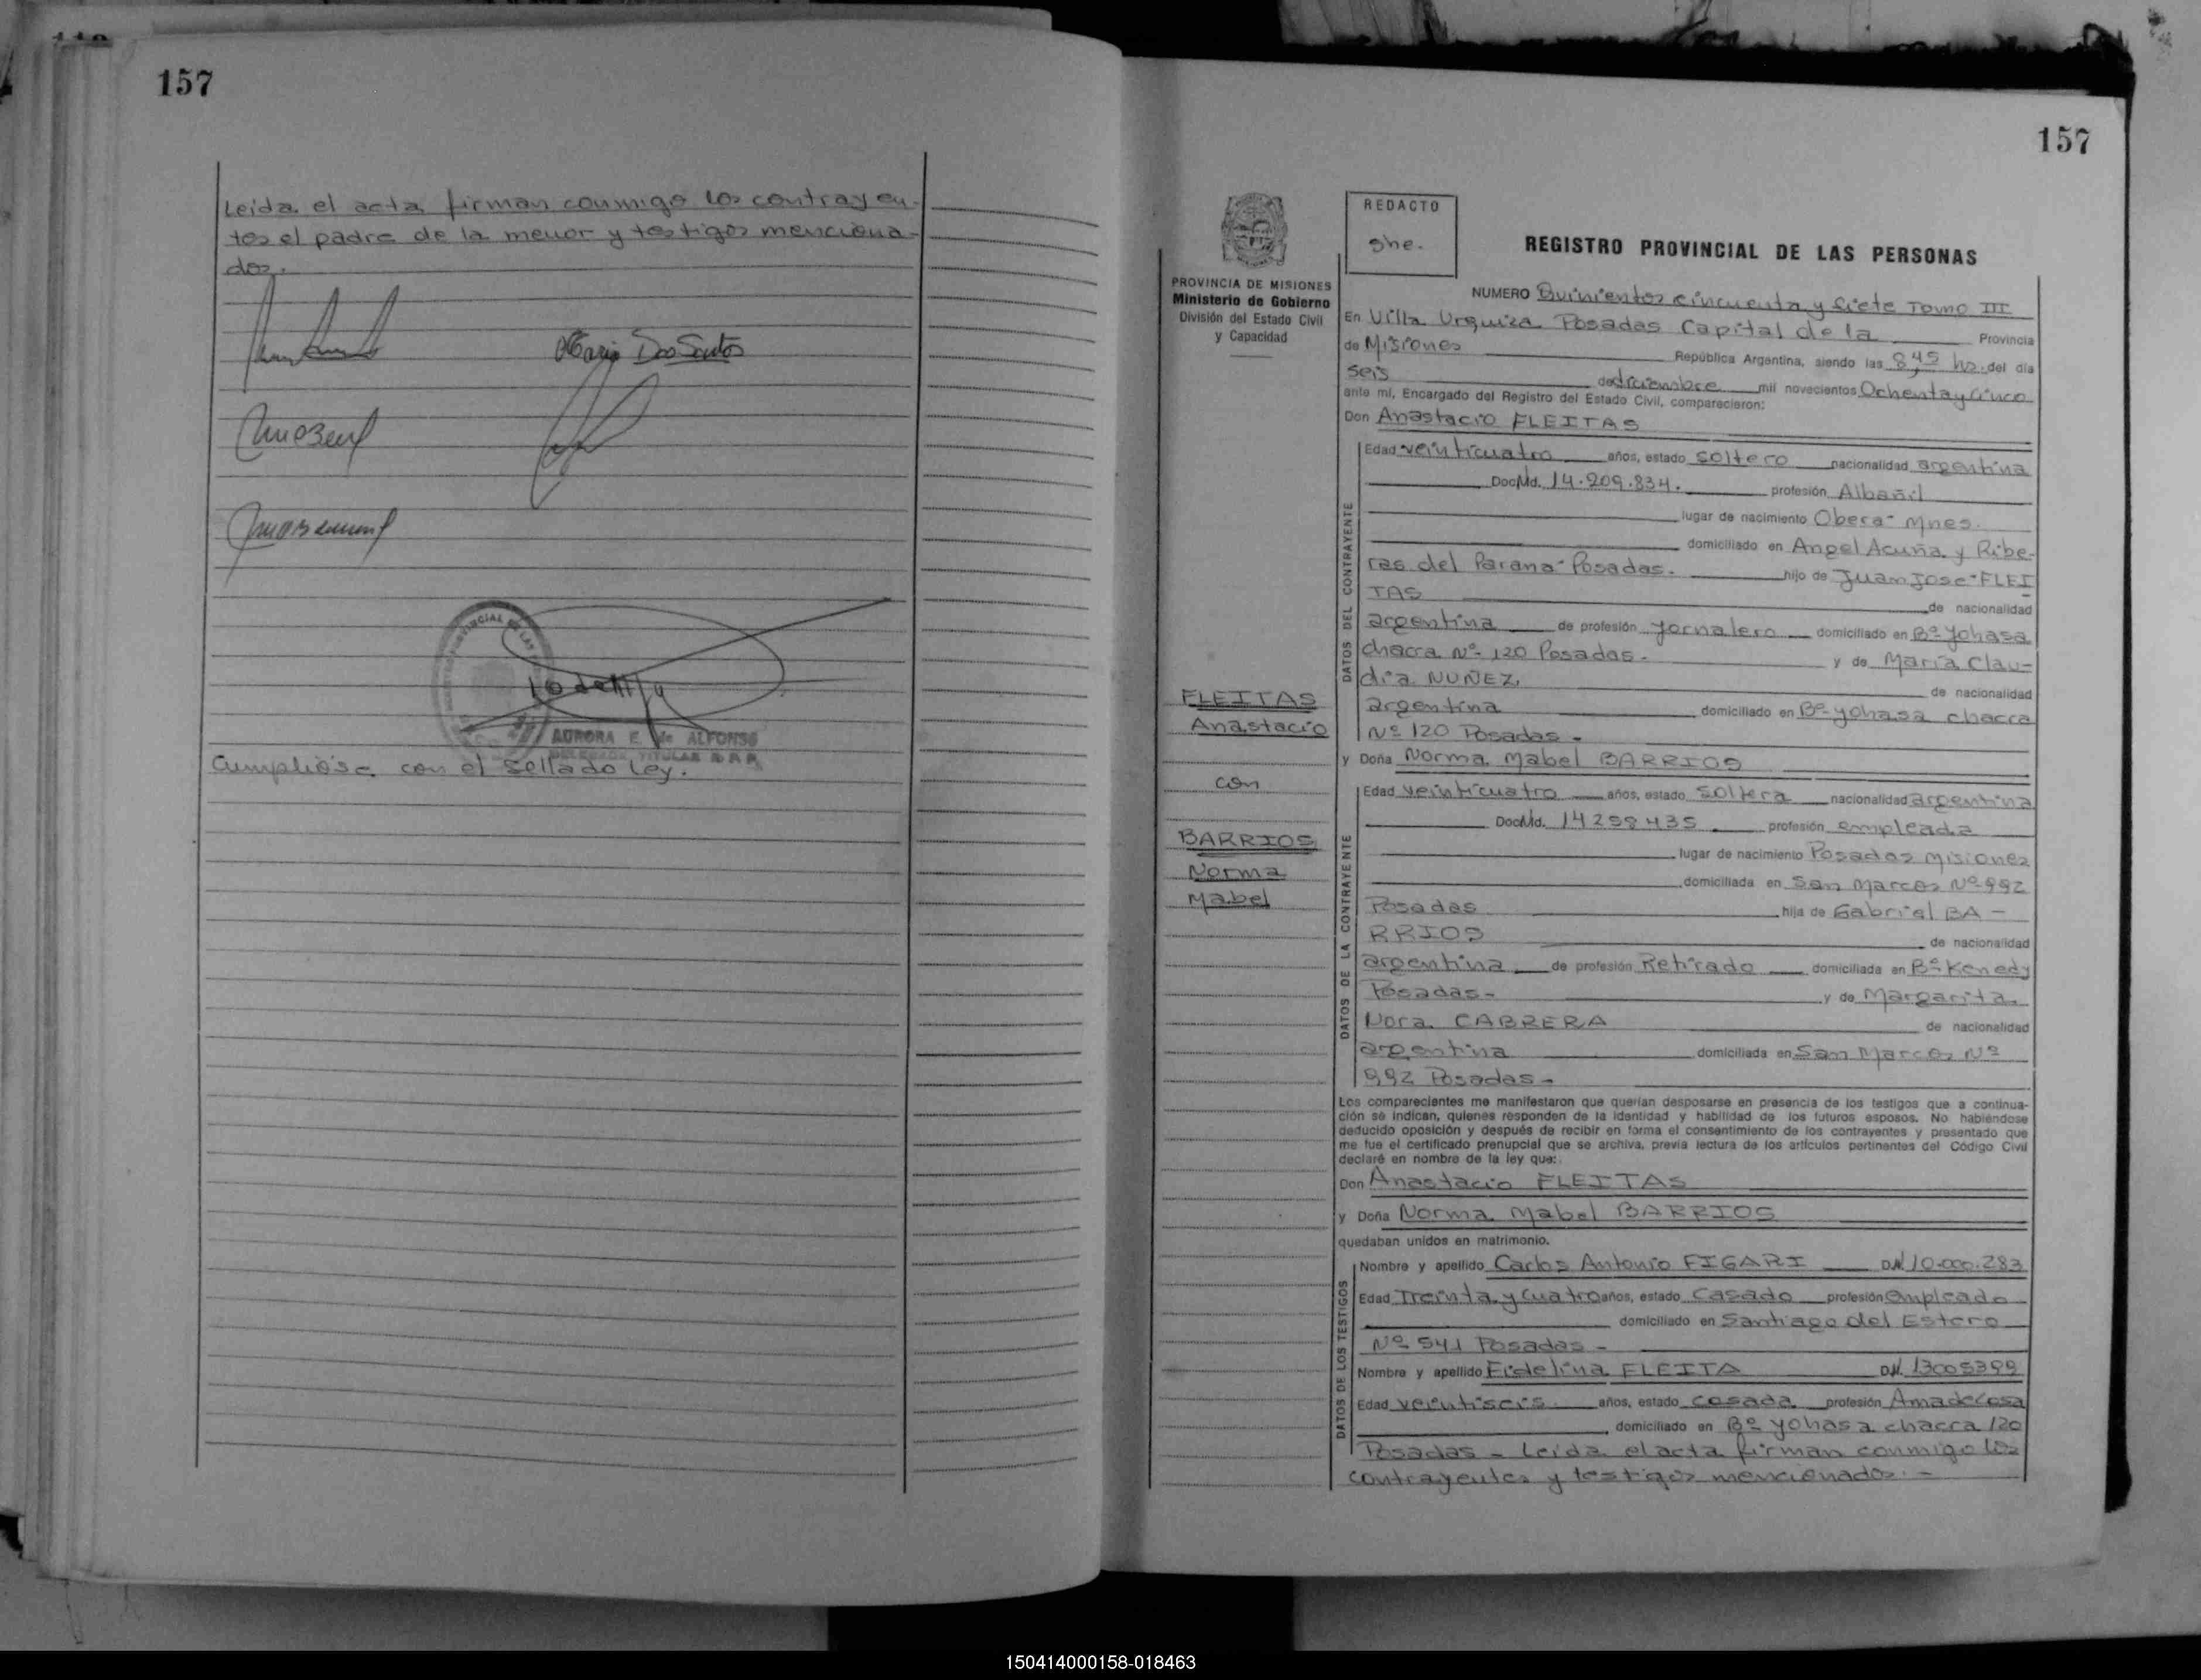 157
Leida el acta firman conmigo los contrayen-
tes el padre de la menor y testigos menciona-
dos.
Maria Dos Santos
AURORA E. de ALFONSO
DELEGADA TITULAR R.P.P.
Cumpliose con el sellado Ley.
157
PROVINCIA DE MISIONES
Ministerio de Gobierno
División del Estado Civil
y Capacidad
FLEITAS
Anastacio
con
BARRIOS
Norma
Mabel
REDACTO
she.
REGISTRO PROVINCIAL DE LAS PERSONAS
NUMERO Quinientos cincuenta y siete Tomo III
En Villa Urquiza Posadas Capital de la Provincia
de Misiones República Argentina, siendo las 8,45 hs. del día
seis de diciembre mil novecientos Ochenta y cinco
ante mí, Encargado del Registro del Estado Civil, comparecieron:
Don Anastacio FLEITAS
DATOS DEL CONTRAYENTE
Edad veinticuatro años, estado soltero nacionalidad argentina
Doc. Nd. 14.209.834. profesión Albañil
lugar de nacimiento Obera- Mnes.
domiciliado en Angel Acuña y Ribe-
ras del Parana- Posadas. hijo de Juan Jose FLEI
TAS de nacionalidad
argentina de profesión Jornalero domiciliado en Bº Yohasa
chacra Nº 120 Posadas. y de Maria Clau-
dia NUÑEZ, de nacionalidad
argentina domiciliado en Bº yohasa chacra
Nº 120 Posadas.
y Doña Norma Mabel BARRIOS
DATOS DE LA CONTRAYENTE
Edad veinticuatro años, estado soltera nacionalidad argentina
Doc. Nd. 14258435 profesión empleada
lugar de nacimiento Posadas Misiones
domiciliada en San Marcos Nº 992
Posadas hija de Gabriel BA-
RRIOS de nacionalidad
argentina de profesión Retirado domiciliada en Bº Kenedy
Posadas- y de Margarita
Nora CABRERA de nacionalidad
argentina domiciliada en San Marcos Nº
992 Posadas-
Los comparecientes me manifestaron que querían desposarse en presencia de los testigos que a continua-
ción se indican, quienes responden de la identidad y habilidad de los futuros esposos. No habiéndose
deducido oposición y después de recibir en forma el consentimiento de los contrayentes y presentado que
me fue el certificado prenupcial que se archiva, previa lectura de los artículos pertinentes del Código Civil
declaré en nombre de la ley que:
Don Anastacio FLEITAS
y Doña Norma Mabel BARRIOS
quedaban unidos en matrimonio.
DATOS DE LOS TESTIGOS
Nombre y apellido Carlos Antonio FIGARI DNI 10.000.283
Edad Treinta y cuatro años, estado Casado profesión empleado
domiciliado en Santiago del Estero
Nº 541 Posadas-
Nombre y apellido Fidelina FLEITA DNI 13005399
Edad veintiseis años, estado casada profesión Ama de casa
domiciliado en Bº yohasa chacra 120
Posadas- Leida el acta firman conmigo los
contrayentes y testigos mencionados.-
150414000158-018463